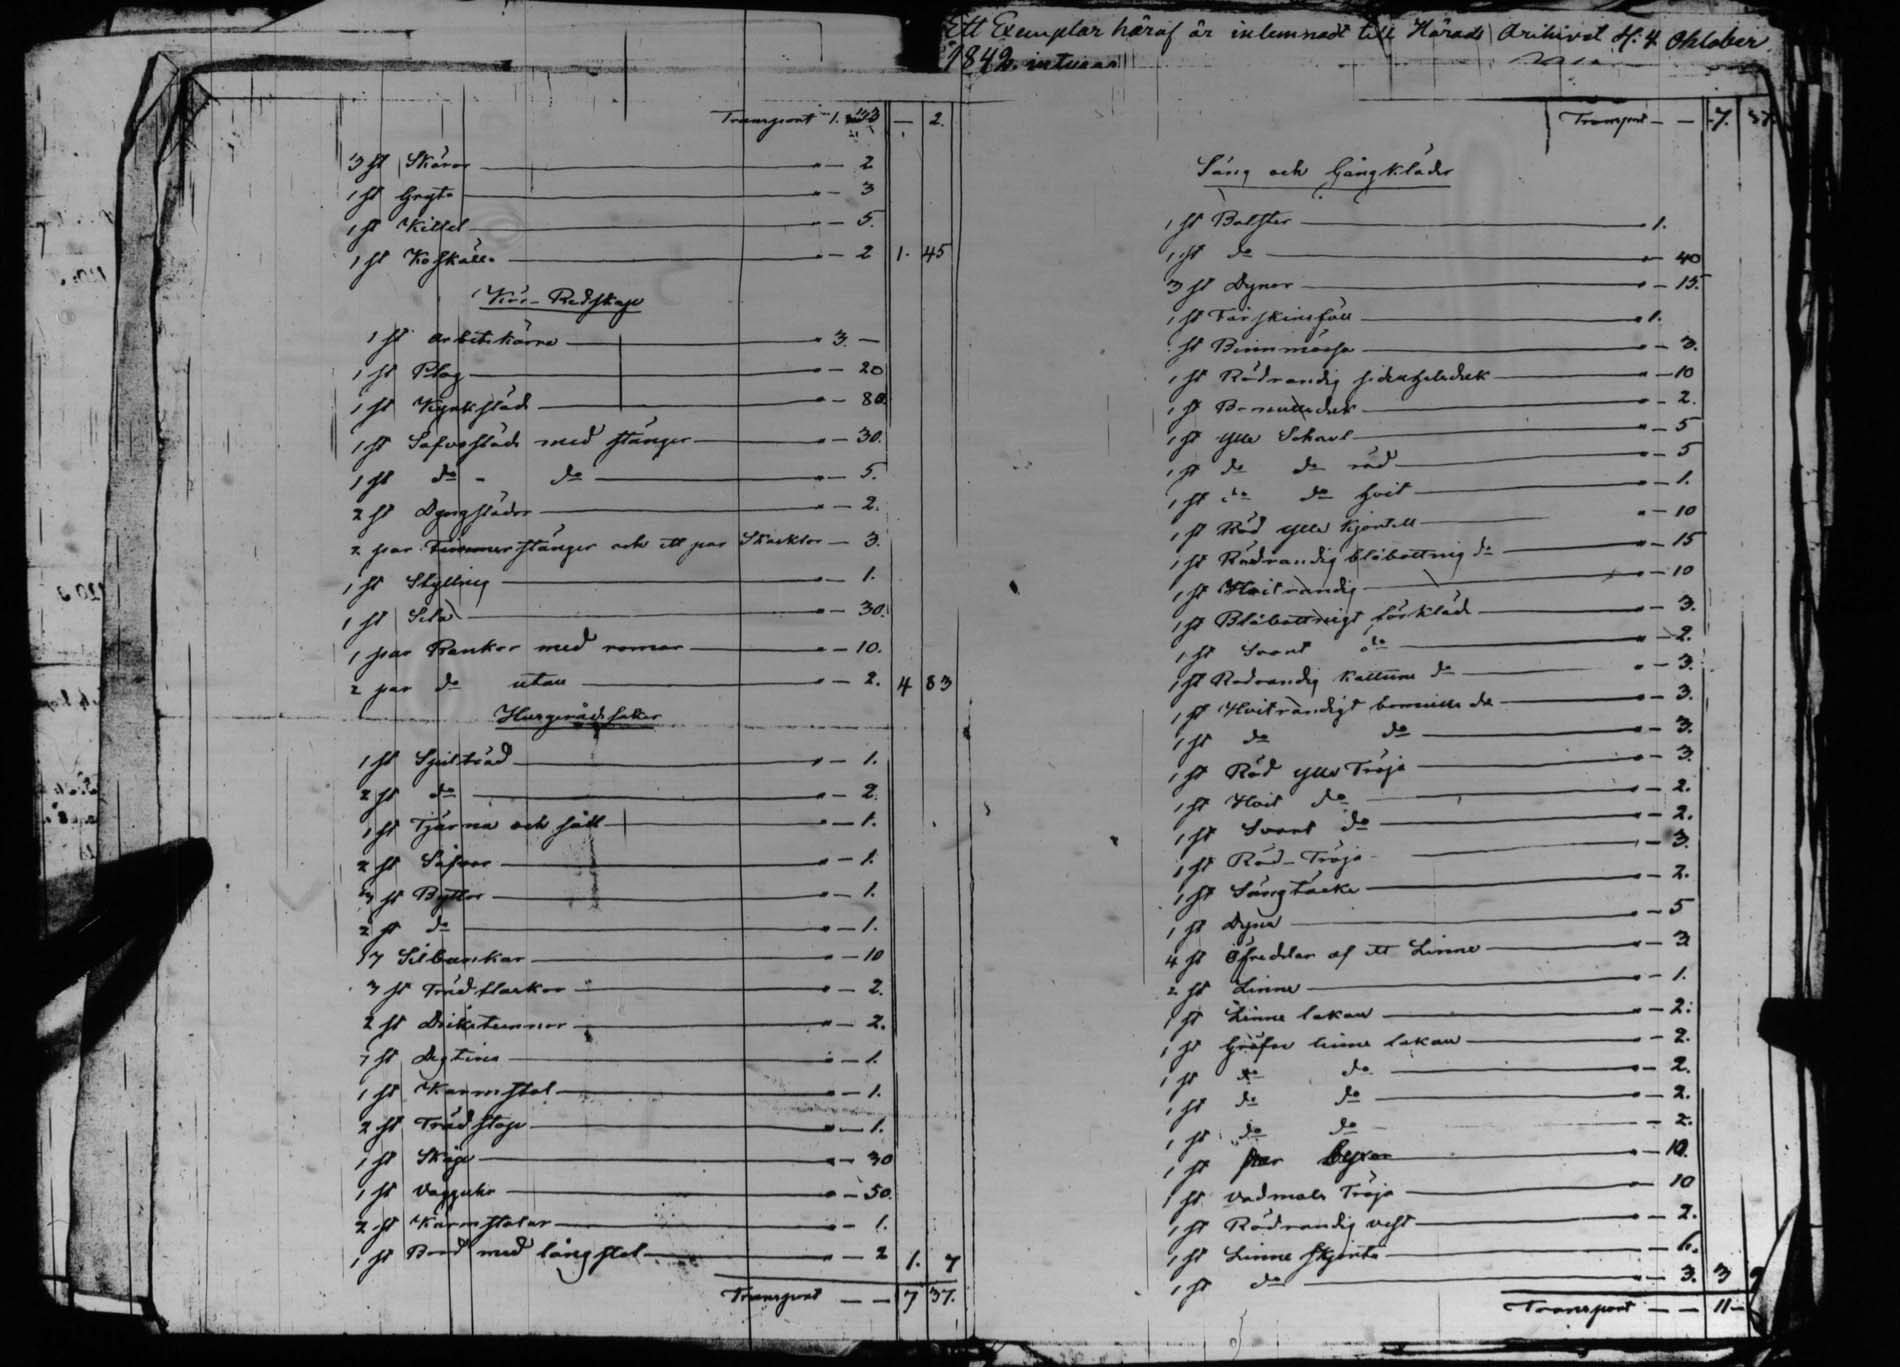 Ett Exemplar häraf är inlemnadt till Härads Arkivet d. 4 Oktober
1842.
Transport 1. 33 — 2.
3 st Skäror " — 2
1 st Gryta " — 3
1 st Kittel " — 5.
1 st Koskälla " — 2 1. 45
Kör-Redskap
1 st Arbetskärra " 3. —
1 st Plog " — 20
1 st Kyrksläde " — 80.
1 st släde med stänger " — 30.
1 st do - do " — 5.
2 st Dyngslädor " — 2.
2 par stänger och ett par Skacklor — 3.
1 st Skylling " — 1.
1 st Sela " — 30.
1 par Rankor med remar " — 10.
2 par do utan " — 2. 4 83
Husgerådssaker
1 st " — 1.
2 st do " — 2.
1 st Tjärna och såll " — 1.
2 st Såfvar " — 1.
3 st Byttor " — 1.
2 st do " — 1.
17 Silbunkar " — 10
3 st Träd flaskor " — 2.
2 st Drickstunnor " — 2.
1 st Degtina " — 1.
1 st Karmstol " — 1.
2 st Träd stop " — 1.
1 st Skåp " — 30
1 st Vägguhr " — 50.
2 st Karmstolar " — 1.
1 st Bord med långstol " — 2 1. 7
Transport — — 7 37.
Transport — — 7. 37.
Säng och Gångkläder
1 st Bolster " 1.
1 st do " — 40
3 st Dynor " — 15.
1 st Fårskinsfäll " 1.
st mössa " — 3.
1 st Rödrandig " — 10
1 st " — 2.
1 st ylle Schavl " — 5
1 st do do röd " — 5
1 st do do hvit " — 1.
1 st Röd ylle Kjortell " — 10
1 st Rödrandig blåbottnig do " — 15
1 st Hvitrandig " — 10
1 st Blåbottnigt förkläde " — 3.
1 st Svart do " — 2.
1 st Rödrandig kattuns do " — 3.
1 st Hvitrandigt bomulls do " — 3.
1 st do do " — 3.
1 st Röd ylle Tröja " — 3.
1 st Hvit do " — 2.
1 st Svart do " — 2.
1 st Röd-Tröja — 3.
1 st Sängtäcke " — 2.
1 st Dyna " — 5
4 st Öfredelar af ett Linne " — 3
2 st Linne " — 1.
1 st Linne lakan " — 2.
1 st Gröfre linne lakan " — 2.
1 st do do " — 2.
1 st do do " — 2.
1 st do do — 2.
1 st par byxor " — 10.
1 st vadmals Tröja " — 10
1 st Rödrandig vest " — 2.
1 st Linne skjorta " — 6.
1 st do " — 3. 3 9
Transport — — 11 —